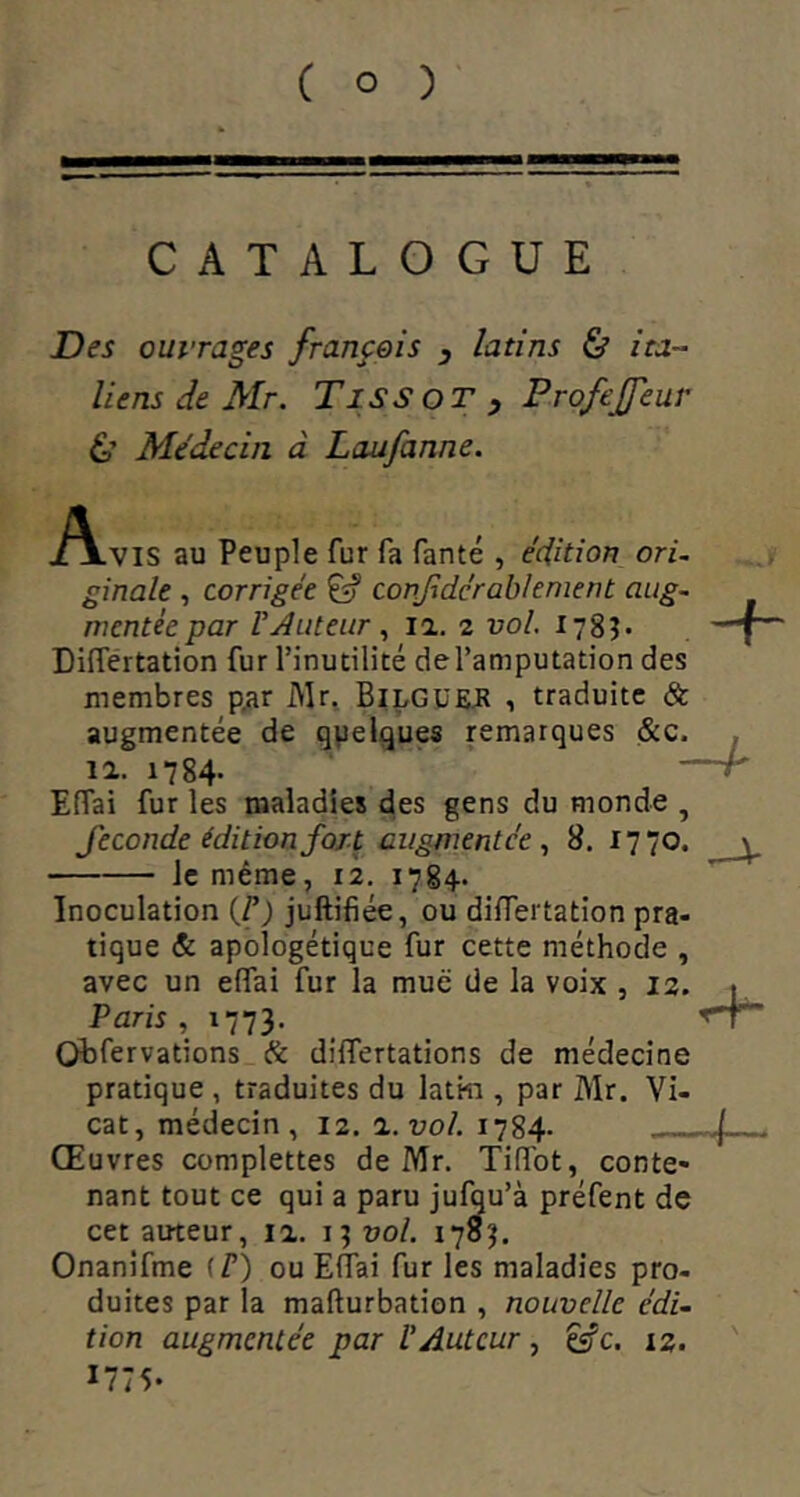 ( o )
CATALOGUE
Des ouvrages françois , latins & ita-
liens de Mr. TISSOT , Profeſſeur
& Médecin à Lauſanne.
AVIS au Peuple ſur ſa ſanté , édition ori-
ginale , corrigée & conſidérablement aug-
mentée par l'Auteur , 12. 2 vol. 1783.
Diſſertation ſur l'inutilité de l'amputation des
membres par Mr. BILGUER , traduite &
augmentée de quelques remarques &c.
12. 1784.
Eſſai ſur les maladies des gens du monde ,
ſeconde édition fort augmentée , 8. 1770.
——— le même, 12. 1784.
Inoculation (l') juſtifiée, ou diſſertation pra-
tique & apologétique ſur cette méthode ,
avec un eſſai ſur la muë de la voix , 12.
Paris , 1773.
Obſervations & diſſertations de médecine
pratique , traduites du latin , par Mr. Vi-
cat, médecin , 12. 2. vol. 1784.
Œuvres complettes de Mr. Tiſſot, conte-
nant tout ce qui a paru juſqu'à préſent de
cet auteur, 12. 13 vol. 1783.
Onaniſme (l') ou Eſſai ſur les maladies pro-
duites par la maſturbation , nouvelle édi-
tion augmentée par l'Auteur , &c. 12.
1775.